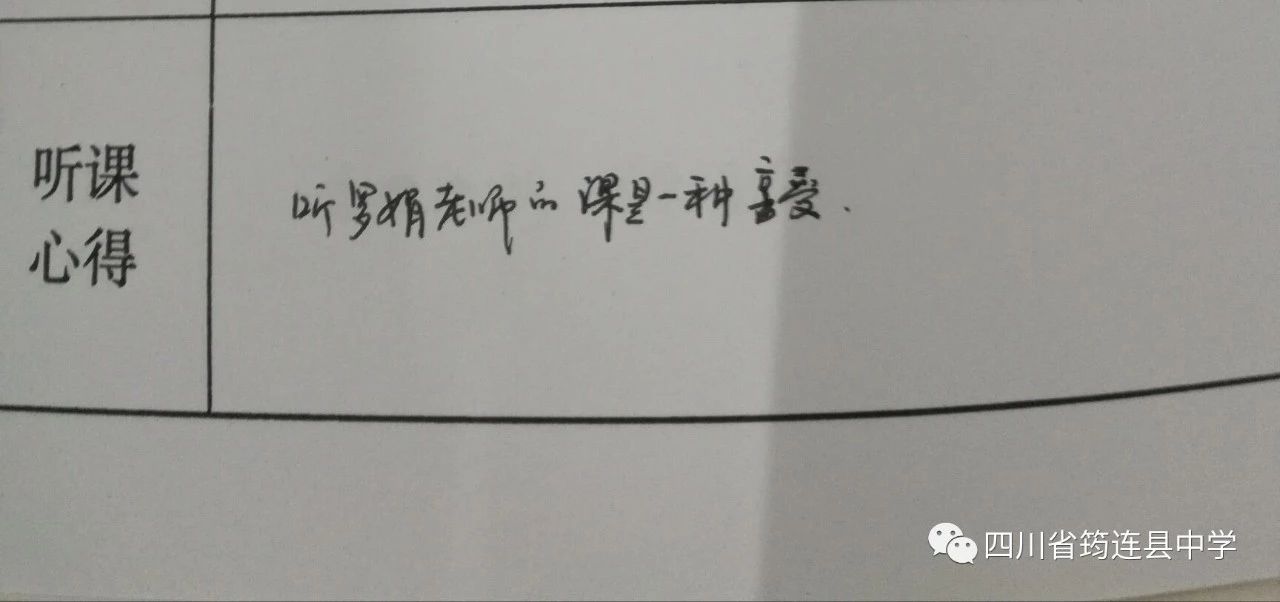 听课
心得
听罗娟老师的课是一种享受.
四川省筠连县中学